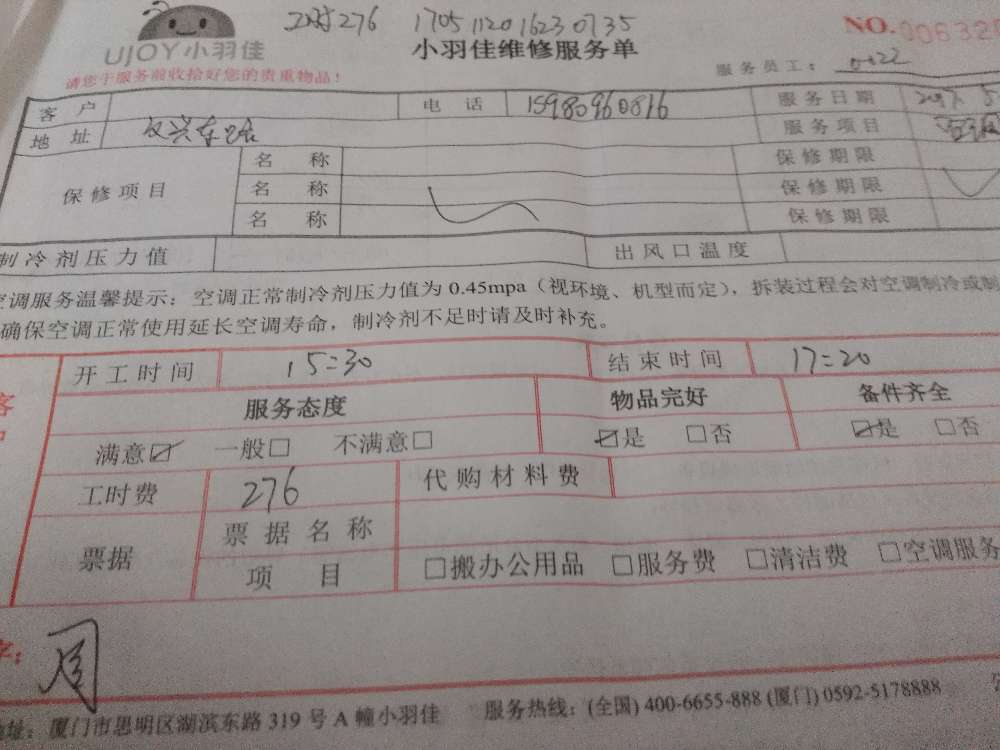 工时276 1705112016230735
UJOY小羽佳
小羽佳维修服务单
NO.
请您于服务前收拾好您的贵重物品！
服务员工：0022
客户 电话 15980960816 服务日期
地址 服务项目 空调
保修项目 名称 保修期限
名称 保修期限
名称 保修期限
制冷剂压力值 出风口温度
空调服务温馨提示：空调正常制冷剂压力值为 0.45mpa（视环境、机型而定），拆装过程会对空调制冷或制
确保空调正常使用延长空调寿命，制冷剂不足时请及时补充。
开工时间 15:30 结束时间 17:20
服务态度 物品完好 备件齐全
满意☑ 一般□ 不满意□ ☑是 □否 ☑是 □否
工时费 276 代购材料费
票据 票据名称
项目 □搬办公用品 □服务费 □清洁费 □空调服务
字：周
地址：厦门市思明区湖滨东路 319 号 A 幢小羽佳 服务热线：(全国) 400-6655-888 (厦门) 0592-5178888